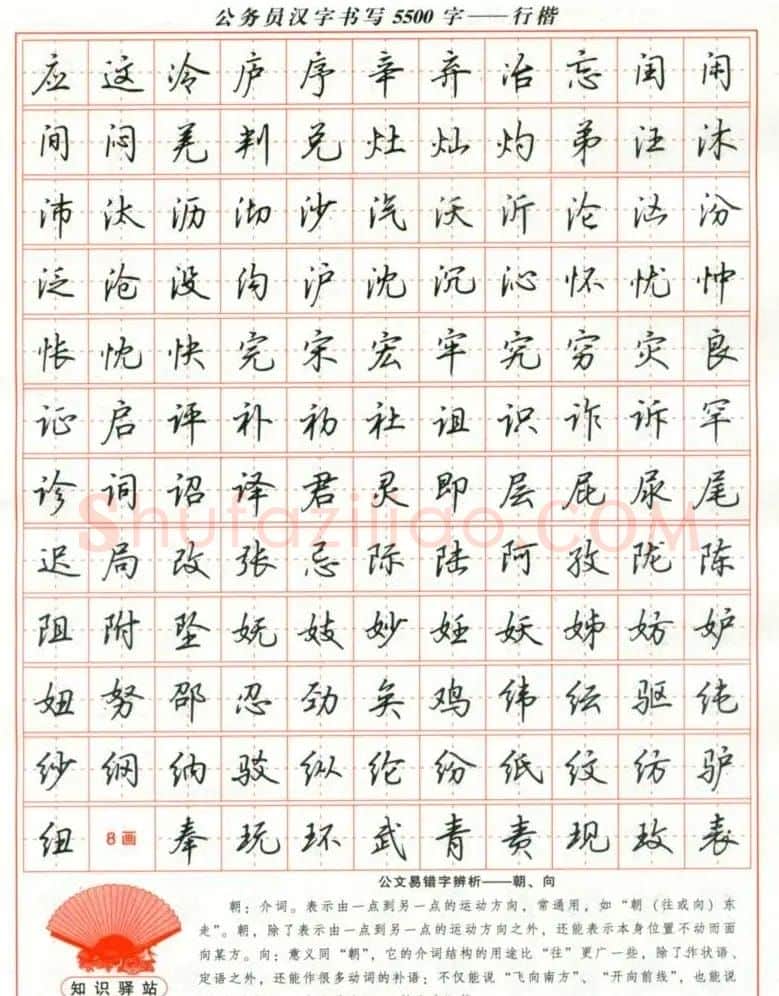 公务员汉字书写5500字——行楷
应这冷庐序辛弃冶忘闰闲
间闷羌判兑灶灿灼弟汪沐
沛汰沥沏沙汽沃沂沦汹汾
泛沧没沟沪沈沉沁怀忧忡
怅忱快完宋宏牢究穷灾良
证启评补初社诅识诈诉罕
诊词诏译君灵即层屁尿尾
迟局改张忌际陆阿孜陇陈
阻附坠妩妓妙妊妖姊妨妒
妞努邵忍劲矣鸡纬纭驱纯
纱纲纳驳纵纶纷纸纹纺驴
纽 8画 奉玩环武青责现玫表
Shufaziliao.COM
公文易错字辨析——朝、向
朝：介词。表示由一点到另一点的运动方向，常通用，如“朝（往或向）东
走”。朝，除了表示由一点到另一点的运动方向之外，还能表示本身位置不动而面
向某方。向：意义同“朝”，它的介词结构的用途比“往”更广一些，除了作状语、
定语之外，还能作很多动词的补语：不仅能说“飞向南方”、“开向前线”，也能说
知识驿站